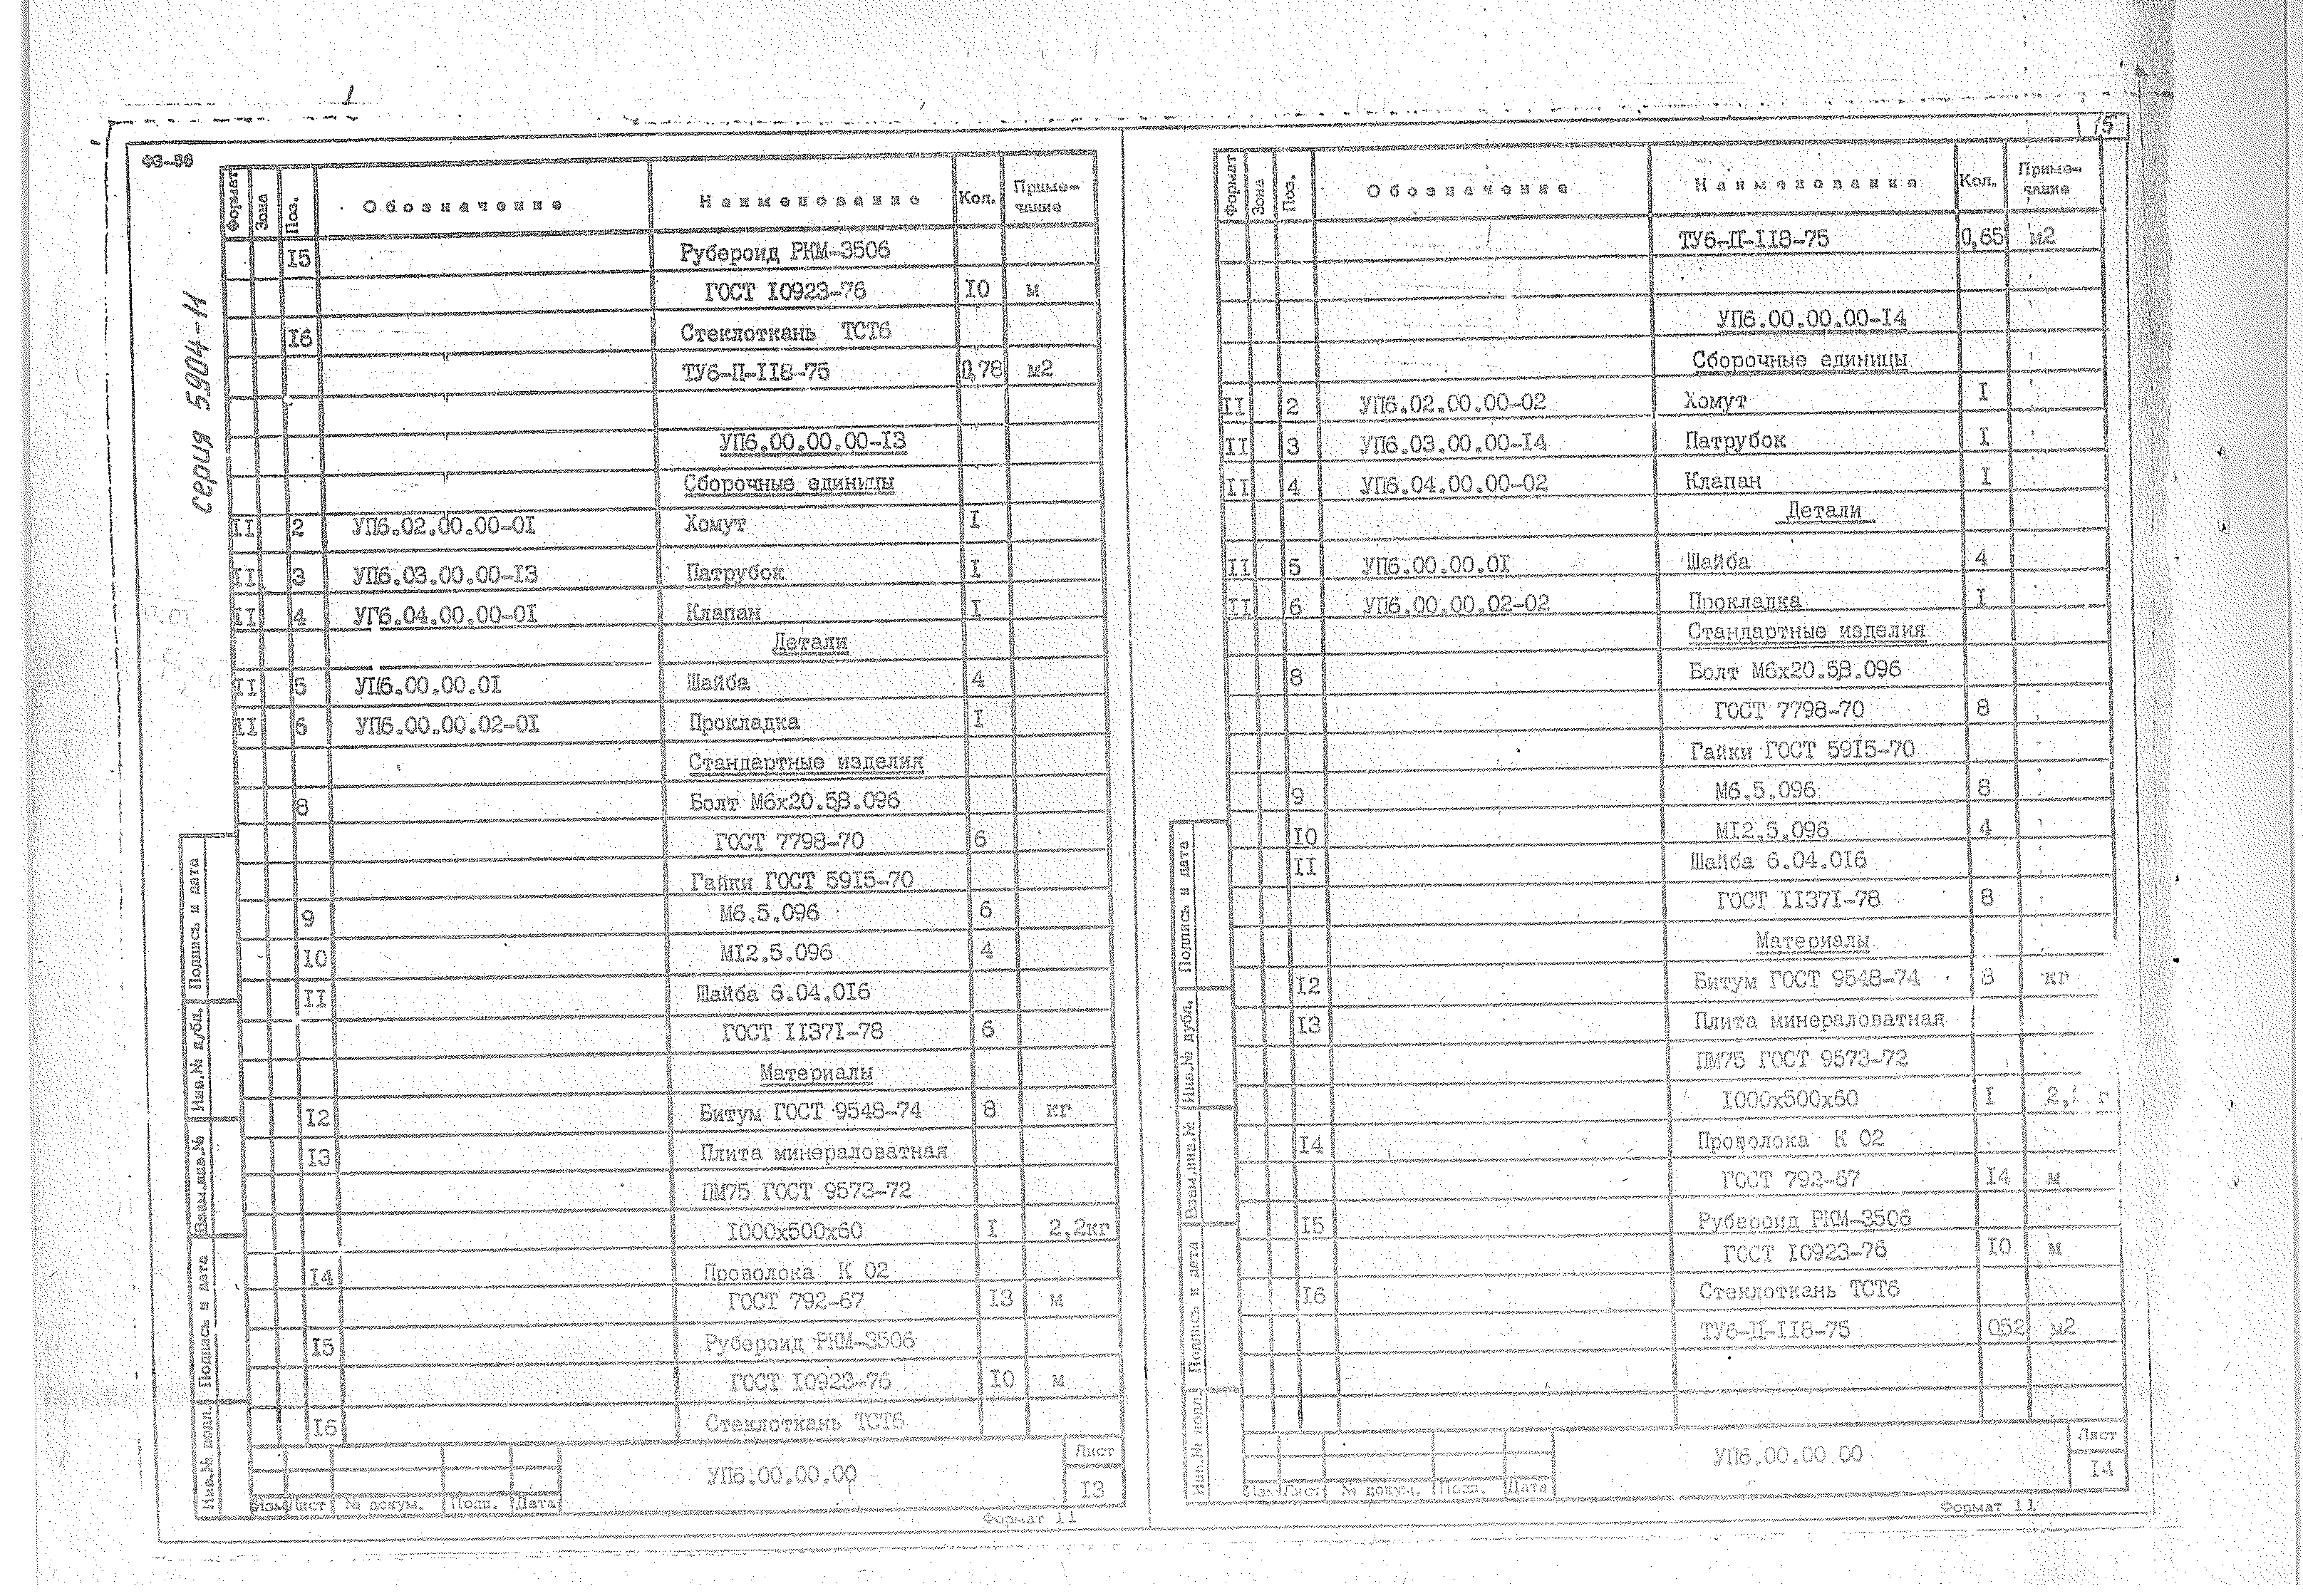 15
ФЗ-56
серия 5904-11
Формат Зона Поз. Обозначение Наименование Кол. Приме-
чание
I5 Рубероид РКМ-3506
ГОСТ I0923-76 I0 м
I6 Стеклоткань ТСТ6
ТУ6-II-II8-75 0,78 м2
УП6.00.00.00-I3
Сборочные единицы
II 2 УП6.02.00.00-0I Хомут I
II 3 УП6.03.00.00-I3 Патрубок I
II 4 УП6.04.00.00-0I Клапан I
Детали
II 5 УП6.00.00.0I Шайба 4
II 6 УП6.00.00.02-0I Прокладка I
Стандартные изделия
8 Болт М6х20.58.096
ГОСТ 7798-70 6
Гайки ГОСТ 59I5-70
9 М6.5.096 6
I0 МI2.5.096 4
II Шайба 6.04.0I6
ГОСТ II37I-78 6
Материалы
I2 Битум ГОСТ 9548-74 8 кг
I3 Плита минераловатная
ПМ75 ГОСТ 9573-72
I000х500х60 I 2,2кг
I4 Проволока К 02
ГОСТ 792-67 I3 м
I5 Рубероид РКМ-3506
ГОСТ I0923-76 I0 м
I6 Стеклоткань ТСТ6
Подпись и дата
Инв.№ дубл.
Взам.инв.№
Подпись и дата
Инв.№ подл.
УП6.00.00.00
Лист
I3
Изм Лист № докум. Подп. Дата
Формат 11
Формат Зона Поз. Обозначение Наименование Кол. Приме-
чание
ТУ6-II-II8-75 0,65 м2
УП6.00.00.00-I4
Сборочные единицы
II 2 УП6.02.00.00-02 Хомут I
II 3 УП6.03.00.00-I4 Патрубок I
II 4 УП6.04.00.00-02 Клапан I
Детали
II 5 УП6.00.00.0I Шайба 4
II 6 УП6.00.00.02-02 Прокладка I
Стандартные изделия
8 Болт М6х20.58.096
ГОСТ 7798-70 8
Гайки ГОСТ 59I5-70
9 М6.5.096 8
I0 МI2.5.096 4
II Шайба 6.04.0I6
ГОСТ II37I-78 8
Материалы
I2 Битум ГОСТ 9548-74 8 кг
I3 Плита минераловатная
ПМ75 ГОСТ 9573-72
I000х500х60 I
I4 Проволока К 02
ГОСТ 792-67 I4 м
I5 Рубероид РКМ-3506
ГОСТ I0923-76 I0 м
I6 Стеклоткань ТСТ6
ТУ6-II-II8-75 052 м2
Подпись и дата
Инв.№ дубл.
Взам.инв.№
Подпись и дата
Инв.№ подл
УП6.00.00.00
Лист
I4
Изм Лист № докум. Подп. Дата
Формат 11